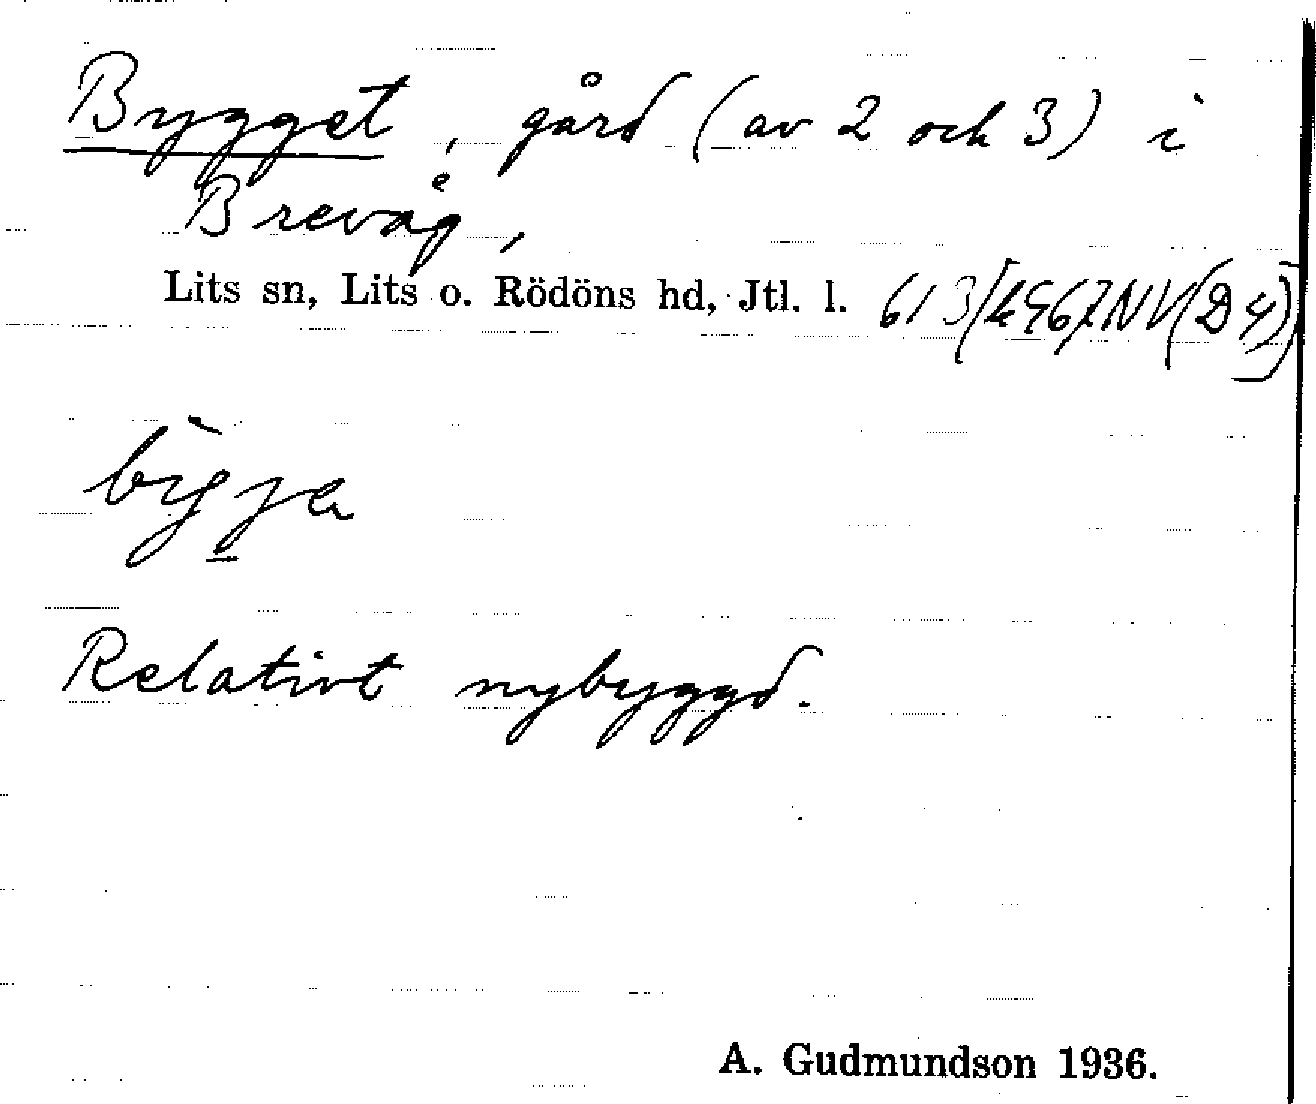 Bygget, gård (av 2 och 3) i
Brevåg,
Lits sn, Lits o. Rödöns hd, Jtl. l.
Relativt nybyggd.
A. Gudmundson 1936.